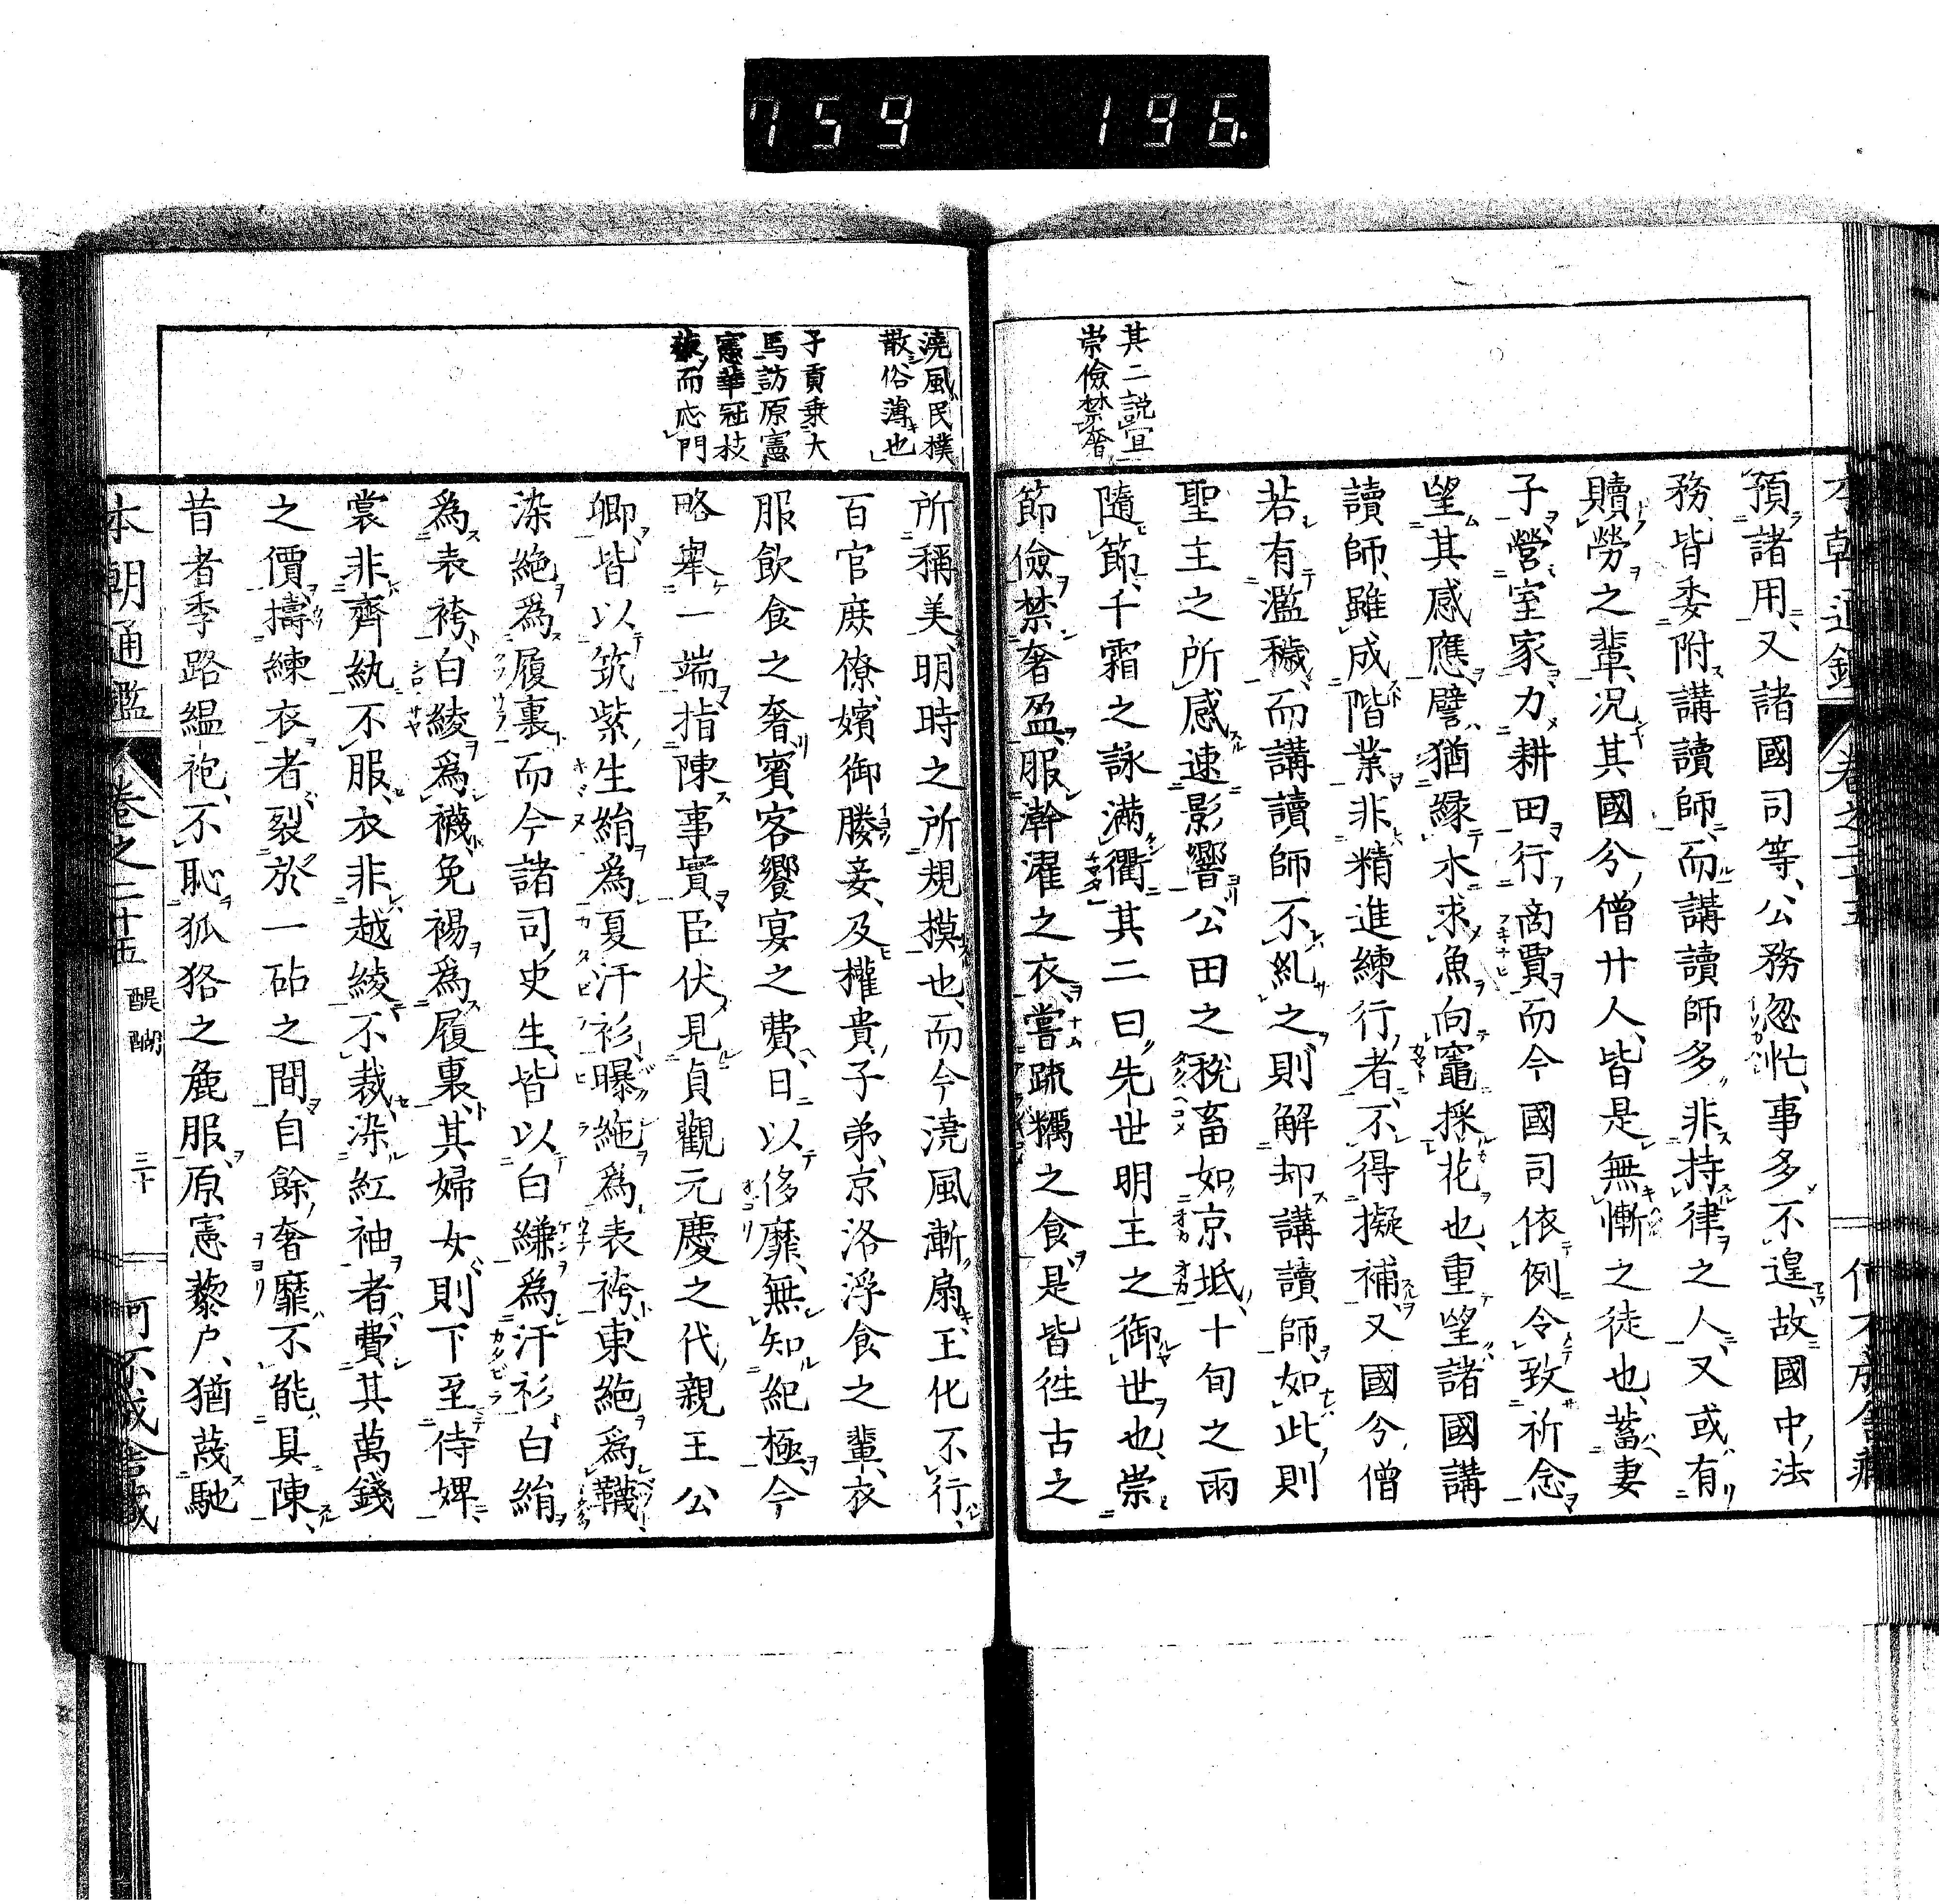 759 196.
其二説宜
崇儉禁奢
預諸用又諸國司等公務忽忙事多不遑故國中法
務皆委附講讀師而講讀師多非持律之人又或有
贖勞之輩況其國分僧廿人皆是無慚之徒也蓄妻
子營室家力耕田行商賈而今國司依例令致祈念
望其感應譬猶緣木求魚向竈採花也重望諸國講
讀師雖成階業非精進練行者不得擬補又國分僧
若有濫穢而講讀師不糺之則解却講讀師如此則
聖主之所感速影響公田之稅畜如京坻十旬之雨
隨節千霜之詠滿衢其二曰先世明主之御世也崇
節儉禁奢盈服澣濯之衣嘗疏糲之食是皆徃古之
澆風民樸
散俗薄也
子貢乘大
馬訪原憲
憲華冠杖
藜而応門
所稱美明時之所規摸也而今澆風漸扇王化不行
百官庶僚嬪御媵妾及權貴子弟京洛浮食之輩衣
服飲食之奢賓客饗宴之費日以侈靡無知紀極今
略舉一端指陳事實臣伏見貞觀元慶之代親王公
卿皆以筑紫生絹爲夏汗衫曝絁爲表袴東絁爲韈
染絁爲履裏而今諸司史生皆以白縑爲汗衫白絹
爲表袴白綾爲襪兔裼爲履裏其婦女則下至侍婢
裳非齊紈不服衣非越綾不裁染紅袖者費其萬錢
之價擣練衣者裂於一砧之間自餘奢靡不能具陳
昔者季路縕袍不恥狐狢之麁服原憲藜戶猶蔑馳
本朝通鑑 卷之二十五 醍醐 三十